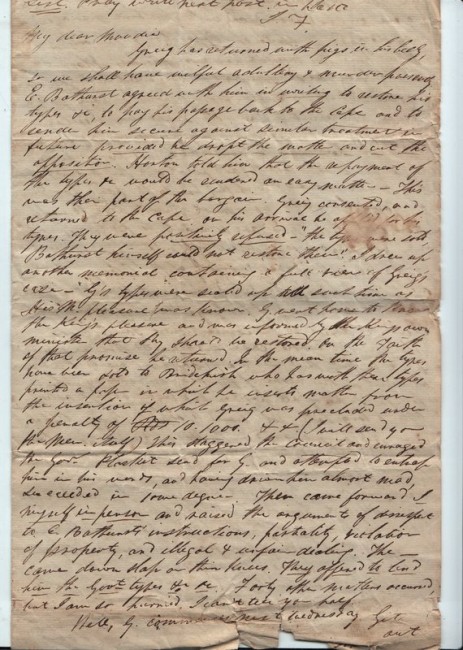 list. Pray write next post. in haste
J. F.
My dear Moodie
Greig has returned with pigs in his belly,
so we shall have wilful adultery & murder
E. Bathurst agreed with him in writing to restore his
types &c, to pay his passage back to the Cape and to
render him secure against similar treatment in
future provided he dropt the matter and cut the
opposition. Horton told him that the repayment of
the types &c would be rendered an easy matter — This
was their part of the bargain. Greig consented, and
returned to the Cape on his arrival he to his
types. They were positively refused — "the types were sold,
Bathurst himself could not restore them". I drew up
another memorial containing a full view of Greig's
case — G's types were sealed up till such time as
His My. pleasure was known. G. went home to
the King's pleasure and was informed by the King's own
minister that they should be restored. On the faith
of that promise he returned. In the mean time the types
have been sold to Bridekirk who has with these types
printed a paper in which he inserts matter from
the insertion of which Greig was precluded under
a penalty of 10.1000. & & (I will send you
the Mem. ) This staggered the Council and enraged
the Gov. Plasket sent for G. and attempted to entrap
him in his words, and having driven him almost mad,
succeeded in some degree. Then came forward I
myself in person and raised the argument of disrespect
to E. Bathurst's instructions, partiality, violation
of property, and illegal & unfair dealing. The —
came down slap on their knees. They offered to lend
him the Govt types &c &c. Forty other matters occurred,
but I am so hurried, I can't tell you half
Well, G. commences next Wednesday Get
out